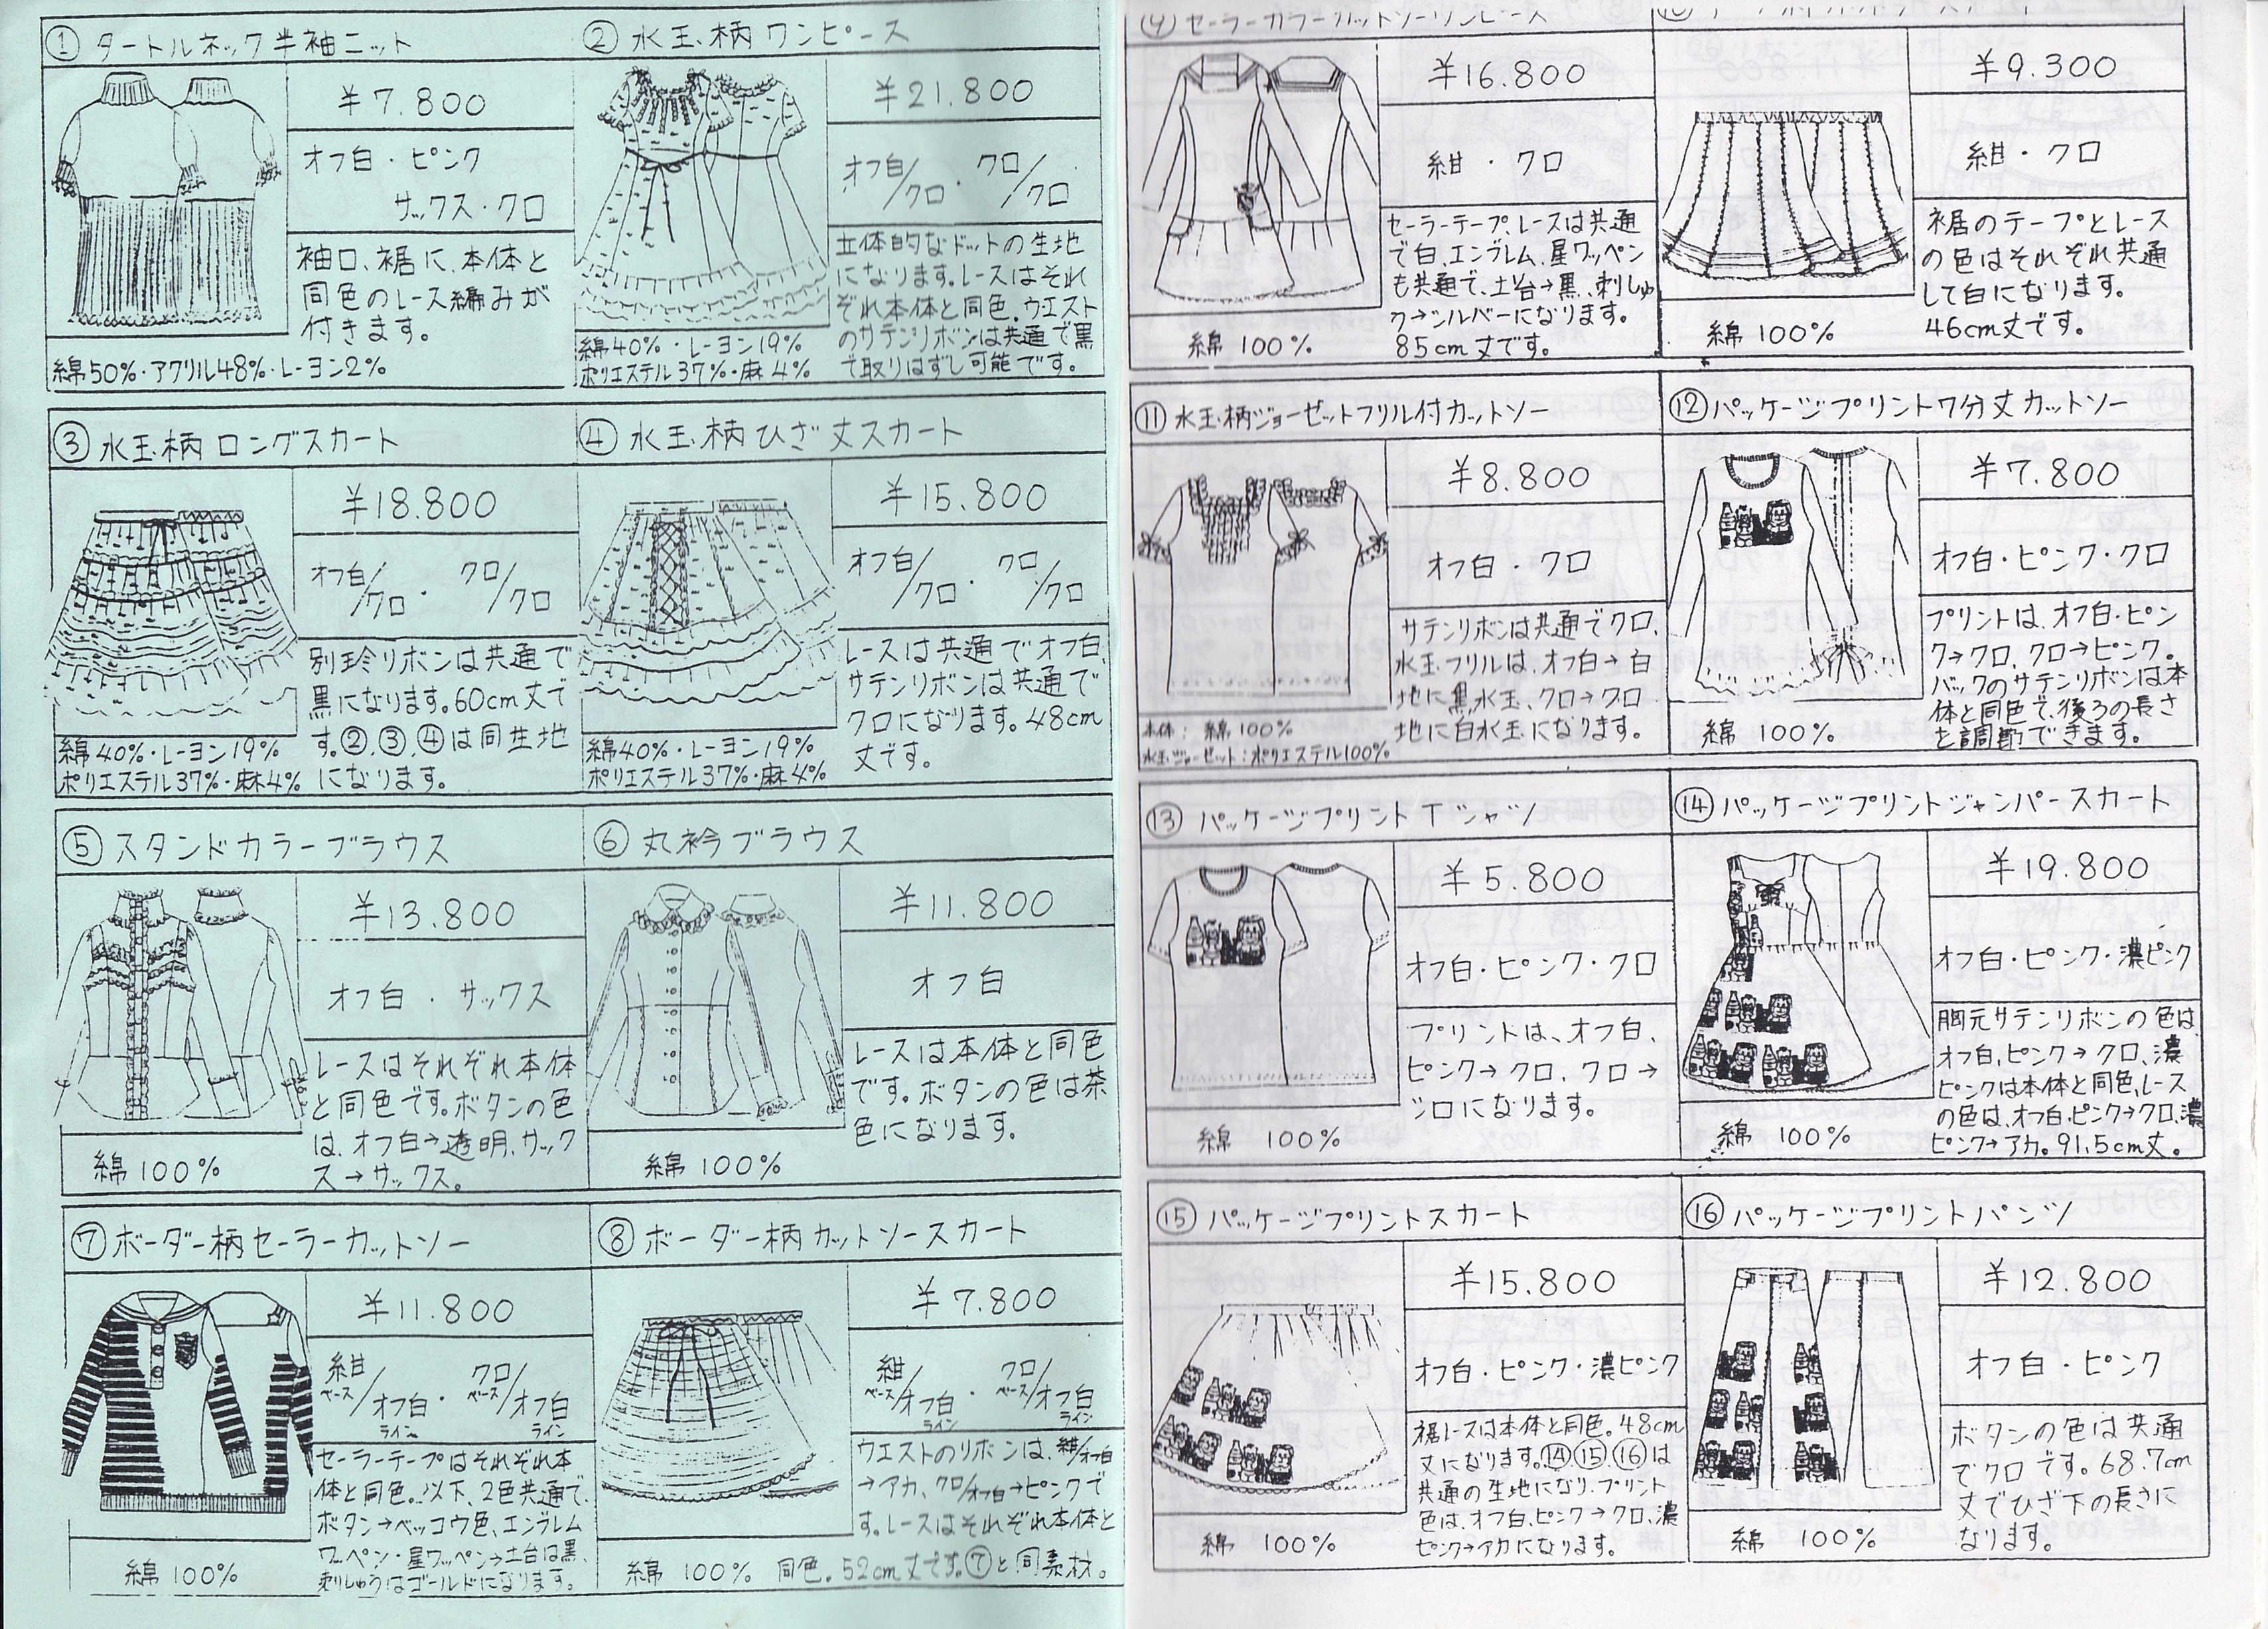 ① タートルネック半袖ニット
¥7.800
オフ白・ピンク
サックス・クロ
袖口、裾に、本体と
同色のレース編みが
付きます。
綿50%・アクリル48%・レーヨン2%
② 水玉柄ワンピース
¥21.800
オフ白/クロ・クロ/クロ
立体的なドットの生地
になります。レースはそれ
ぞれ本体と同色。ウエスト
のサテンリボンは共通で黒
で取りはずし可能です。
綿40%・レーヨン19%
ポリエステル37%・麻4%
③ 水玉柄ロングスカート
¥18.800
オフ白/クロ・クロ/クロ
別珍リボンは共通で
黒になります。60cm丈で
す。②、③、④は同生地
になります。
綿40%・レーヨン19%
ポリエステル37%・麻4%
④ 水玉柄ひざ丈スカート
¥15.800
オフ白/クロ・クロ/クロ
レースは共通でオフ白、
サテンリボンは共通で
クロになります。48cm
丈です。
綿40%・レーヨン19%
ポリエステル37%・麻4%
⑤ スタンドカラーブラウス
¥13.800
オフ白・サックス
レースはそれぞれ本体
と同色です。ボタンの色
は、オフ白→透明、サック
ス→サックス。
綿100%
⑥ 丸衿ブラウス
¥11.800
オフ白
レースは本体と同色
です。ボタンの色は茶
色になります。
綿100%
⑦ ボーダー柄セーラーカットソー
¥11.800
紺ベース/オフ白ライン・クロベース/オフ白ライン
セーラーテープはそれぞれ本
体と同色。以下、2色共通で、
ボタン→ベッコウ色、エンブレム
ワッペン・星ワッペン→土台は黒、
刺しゅうはゴールドになります。
綿100%
⑧ ボーダー柄カットソースカート
¥7.800
紺ベース/オフ白ライン・クロベース/オフ白ライン
ウエストのリボンは、紺/オフ白
→アカ、クロ/オフ白→ピンクで
す。レースはそれぞれ本体と
綿100% 同色。52cm丈です。⑦と同素材。
⑨ セーラーカラーカットソーワンピース
¥16.800
紺・クロ
セーラーテープ、レースは共通
で白、エンブレム、星ワッペン
も共通で、土台→黒、刺しゅ
う→シルバーになります。
85cm丈です。
綿100%
¥9.300
紺・クロ
裾のテープとレース
の色はそれぞれ共通
して白になります。
46cm丈です。
綿100%
⑪ 水玉柄ジョーゼットフリル付カットソー
¥8.800
オフ白・クロ
サテンリボンは共通でクロ、
水玉フリルは、オフ白→白
地に黒水玉、クロ→クロ
地に白水玉になります。
本体:綿100%
水玉ジョーゼット:ポリエステル100%
⑫ パッケージプリント7分丈カットソー
¥7.800
オフ白・ピンク・クロ
プリントは、オフ白・ピン
ク→クロ、クロ→ピンク。
バックのサテンリボンは本
体と同色で、後ろの長さ
を調節できます。
綿100%
⑬ パッケージプリントTシャツ
¥5.800
オフ白・ピンク・クロ
プリントは、オフ白、
ピンク→クロ、クロ→
シロになります。
綿100%
⑭ パッケージプリントジャンパースカート
¥19.800
オフ白・ピンク・濃ピンク
胸元サテンリボンの色は、
オフ白、ピンク→クロ、濃
ピンクは本体と同色、レース
の色は、オフ白、ピンク→クロ、濃
ピンク→アカ。91.5cm丈。
綿100%
⑮ パッケージプリントスカート
¥15.800
オフ白・ピンク・濃ピンク
裾レースは本体と同色。48cm
丈になります。⑭、⑮、⑯は
共通の生地になり、プリント
色は、オフ白、ピンク→クロ、濃
ピンク→アカになります。
綿100%
⑯ パッケージプリントパンツ
¥12.800
オフ白・ピンク
ボタンの色は共通
でクロです。68.7cm
丈でひざ下の長さに
なります。
綿100%